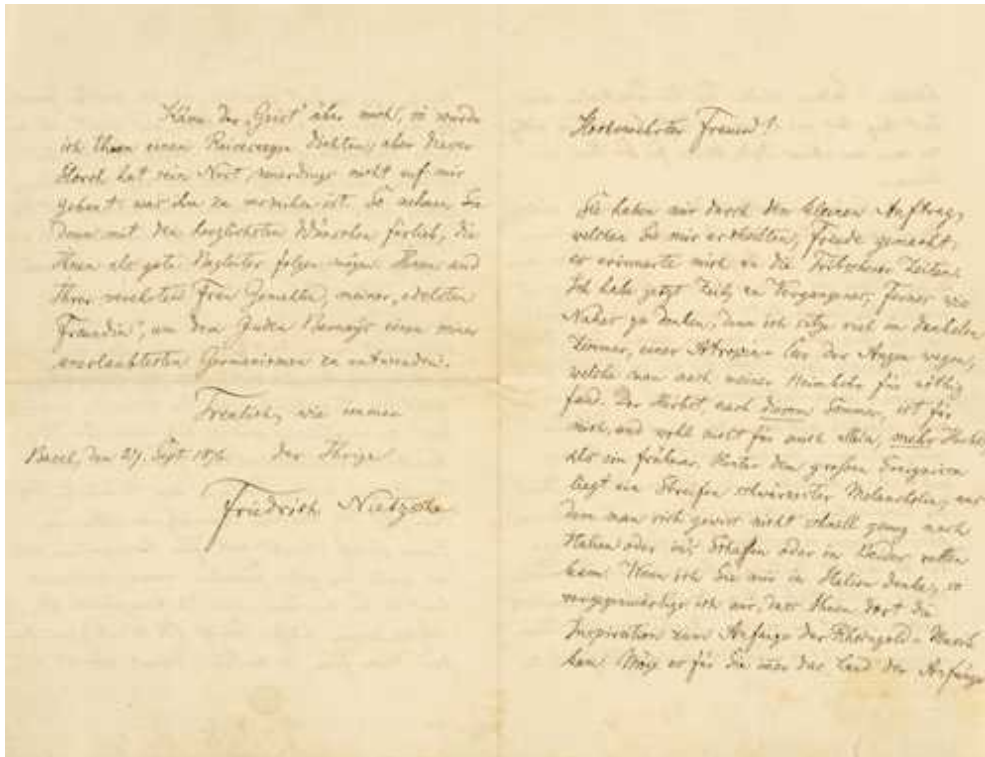 Käme der „Geist“ über mich, so würde
ich Ihnen einen Reisesegen dichten; aber dieser
Storch hat sein Nest neuerdings nicht auf mir
gebaut: was ihm zu verzeihen ist. So nehmen Sie
denn mit den herzlichsten Wünschen fürlieb, die
Ihnen als gute Begleiter folgen mögen: Ihnen und
Ihrer verehrten Frau Gemahlin, meiner „edelsten
Freundin“, um dem Juden Bernays einen seiner
unerlaubtesten Germanismen zu entwenden.
Treulich, wie immer
Basel, den 27. Sept 1876. der Ihrige
Friedrich Nietzsche
Hochverehrter Freund!
Sie haben mir durch den kleinen Auftrag,
welchen Sie mir ertheilten, Freude gemacht:
er erinnerte mich an die Tribschener Zeiten.
Ich habe jetzt Zeit, an Vergangenes, Fernes wie
Nahes zu denken, denn ich sitze viel im dunkelen
Zimmer, einer Atropin-Cur der Augen wegen,
welche man nach meiner Heimkehr für nöthig
fand. Der Herbst, nach diesem Sommer, ist für
mich, und wohl nicht für mich allein, mehr Herbst,
als ein früherer. Hinter dem grossen Ereignisse
liegt ein Streifen schwärzester Melancholie, aus
dem man sich gewiss nicht schnell genug nach
Italien oder in's Schaffen oder in Beides retten
kann. Wenn ich Sie mir in Italien denke, so
vergegenwärtige ich mir, dass Ihnen dort die
Inspiration zum Anfange der Rheingold-Musik
kam. Möge es für Sie immer das Land der Anfänge